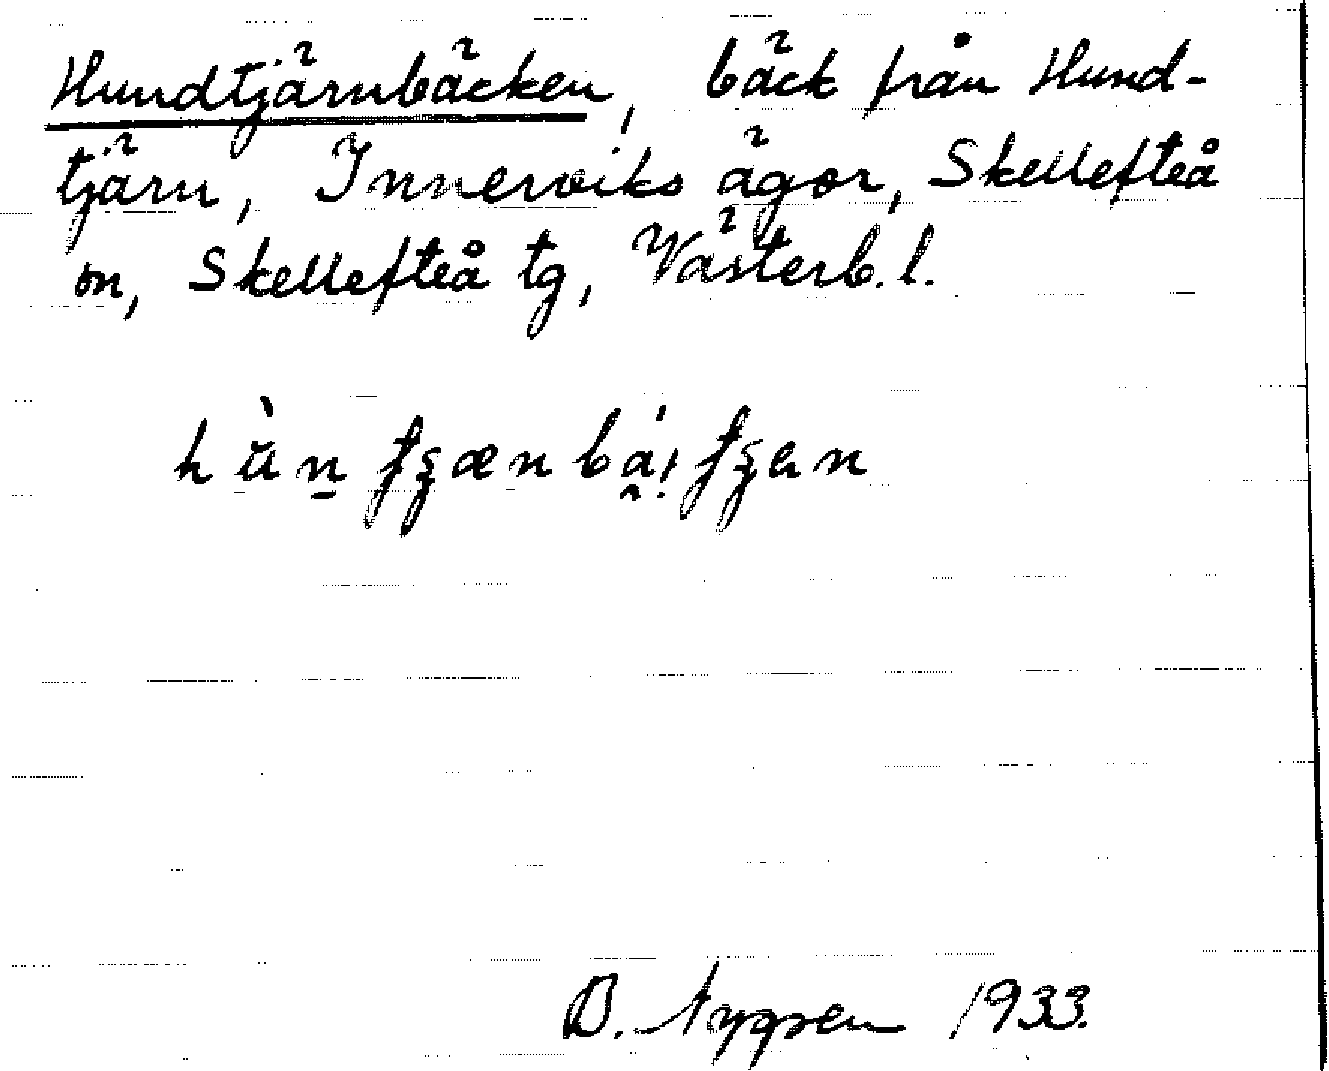 Hundtjärnbäcken, bäck från Hund-
tjärn, Innerviks ägor, Skellefteå
sn, Skellefteå tg, Västerb. l.
B. Nygren 1933.